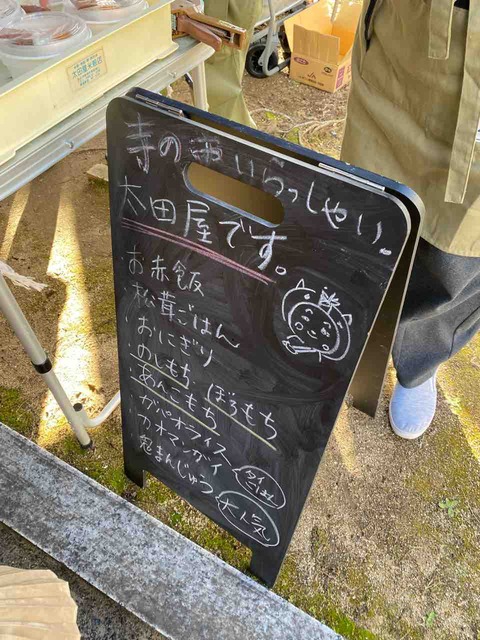 いらっしゃい
太田屋です。
お赤飯
松茸ごはん
おにぎり
のしもち ぼろもち
あんこもち
ガパオライス
カオマンガイ
タイ
ごはん
鬼まんじゅう
大人気